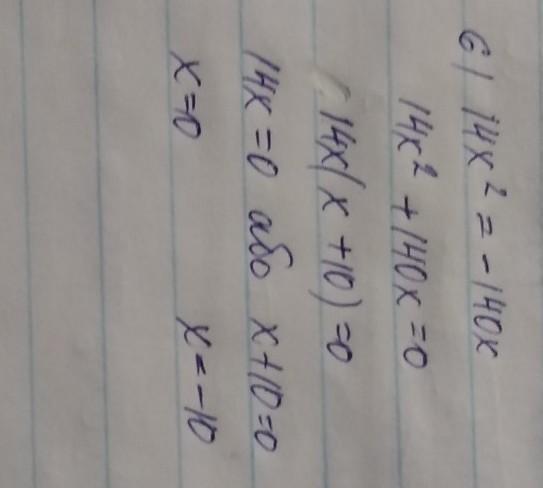 6) 14x² = -140x
14x² + 140x = 0
14x(x + 10) = 0
14x = 0 або x + 10 = 0
x = 0 x = -10